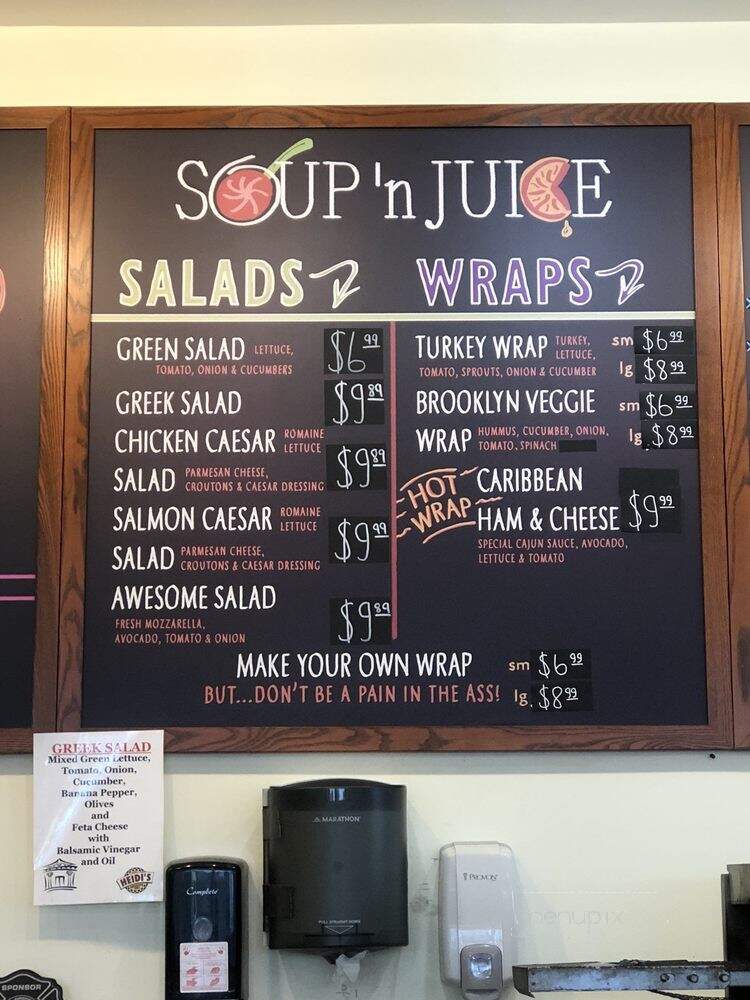 SOUP 'n JUICE
SALADS
GREEN SALAD LETTUCE, $6.99
TOMATO, ONION & CUCUMBERS
GREEK SALAD $9.89
CHICKEN CAESAR ROMAINE LETTUCE
SALAD PARMESAN CHEESE, CROUTONS & CAESAR DRESSING $9.89
SALMON CAESAR ROMAINE LETTUCE
SALAD PARMESAN CHEESE, CROUTONS & CAESAR DRESSING $9.99
AWESOME SALAD
FRESH MOZZARELLA,
AVOCADO, TOMATO & ONION $9.89
WRAPS
TURKEY WRAP TURKEY, LETTUCE, sm $6.99
TOMATO, SPROUTS, ONION & CUCUMBER lg $8.99
BROOKLYN VEGGIE sm $6.99
WRAP HUMMUS, CUCUMBER, ONION, TOMATO, SPINACH lg $8.99
HOT WRAP
CARIBBEAN
HAM & CHEESE $9.99
SPECIAL CAJUN SAUCE, AVOCADO,
LETTUCE & TOMATO
MAKE YOUR OWN WRAP sm $6.99
BUT...DON'T BE A PAIN IN THE ASS! lg. $8.99
GREEK SALAD
Mixed Green Lettuce,
Tomato, Onion,
Cucumber,
Banana Pepper,
Olives
and
Feta Cheese
with
Balsamic Vinegar
and Oil
HEIDI'S
Complete
MARATHON
PULL STRAIGHT DOWN
PROVON
menupix
SPONSOR